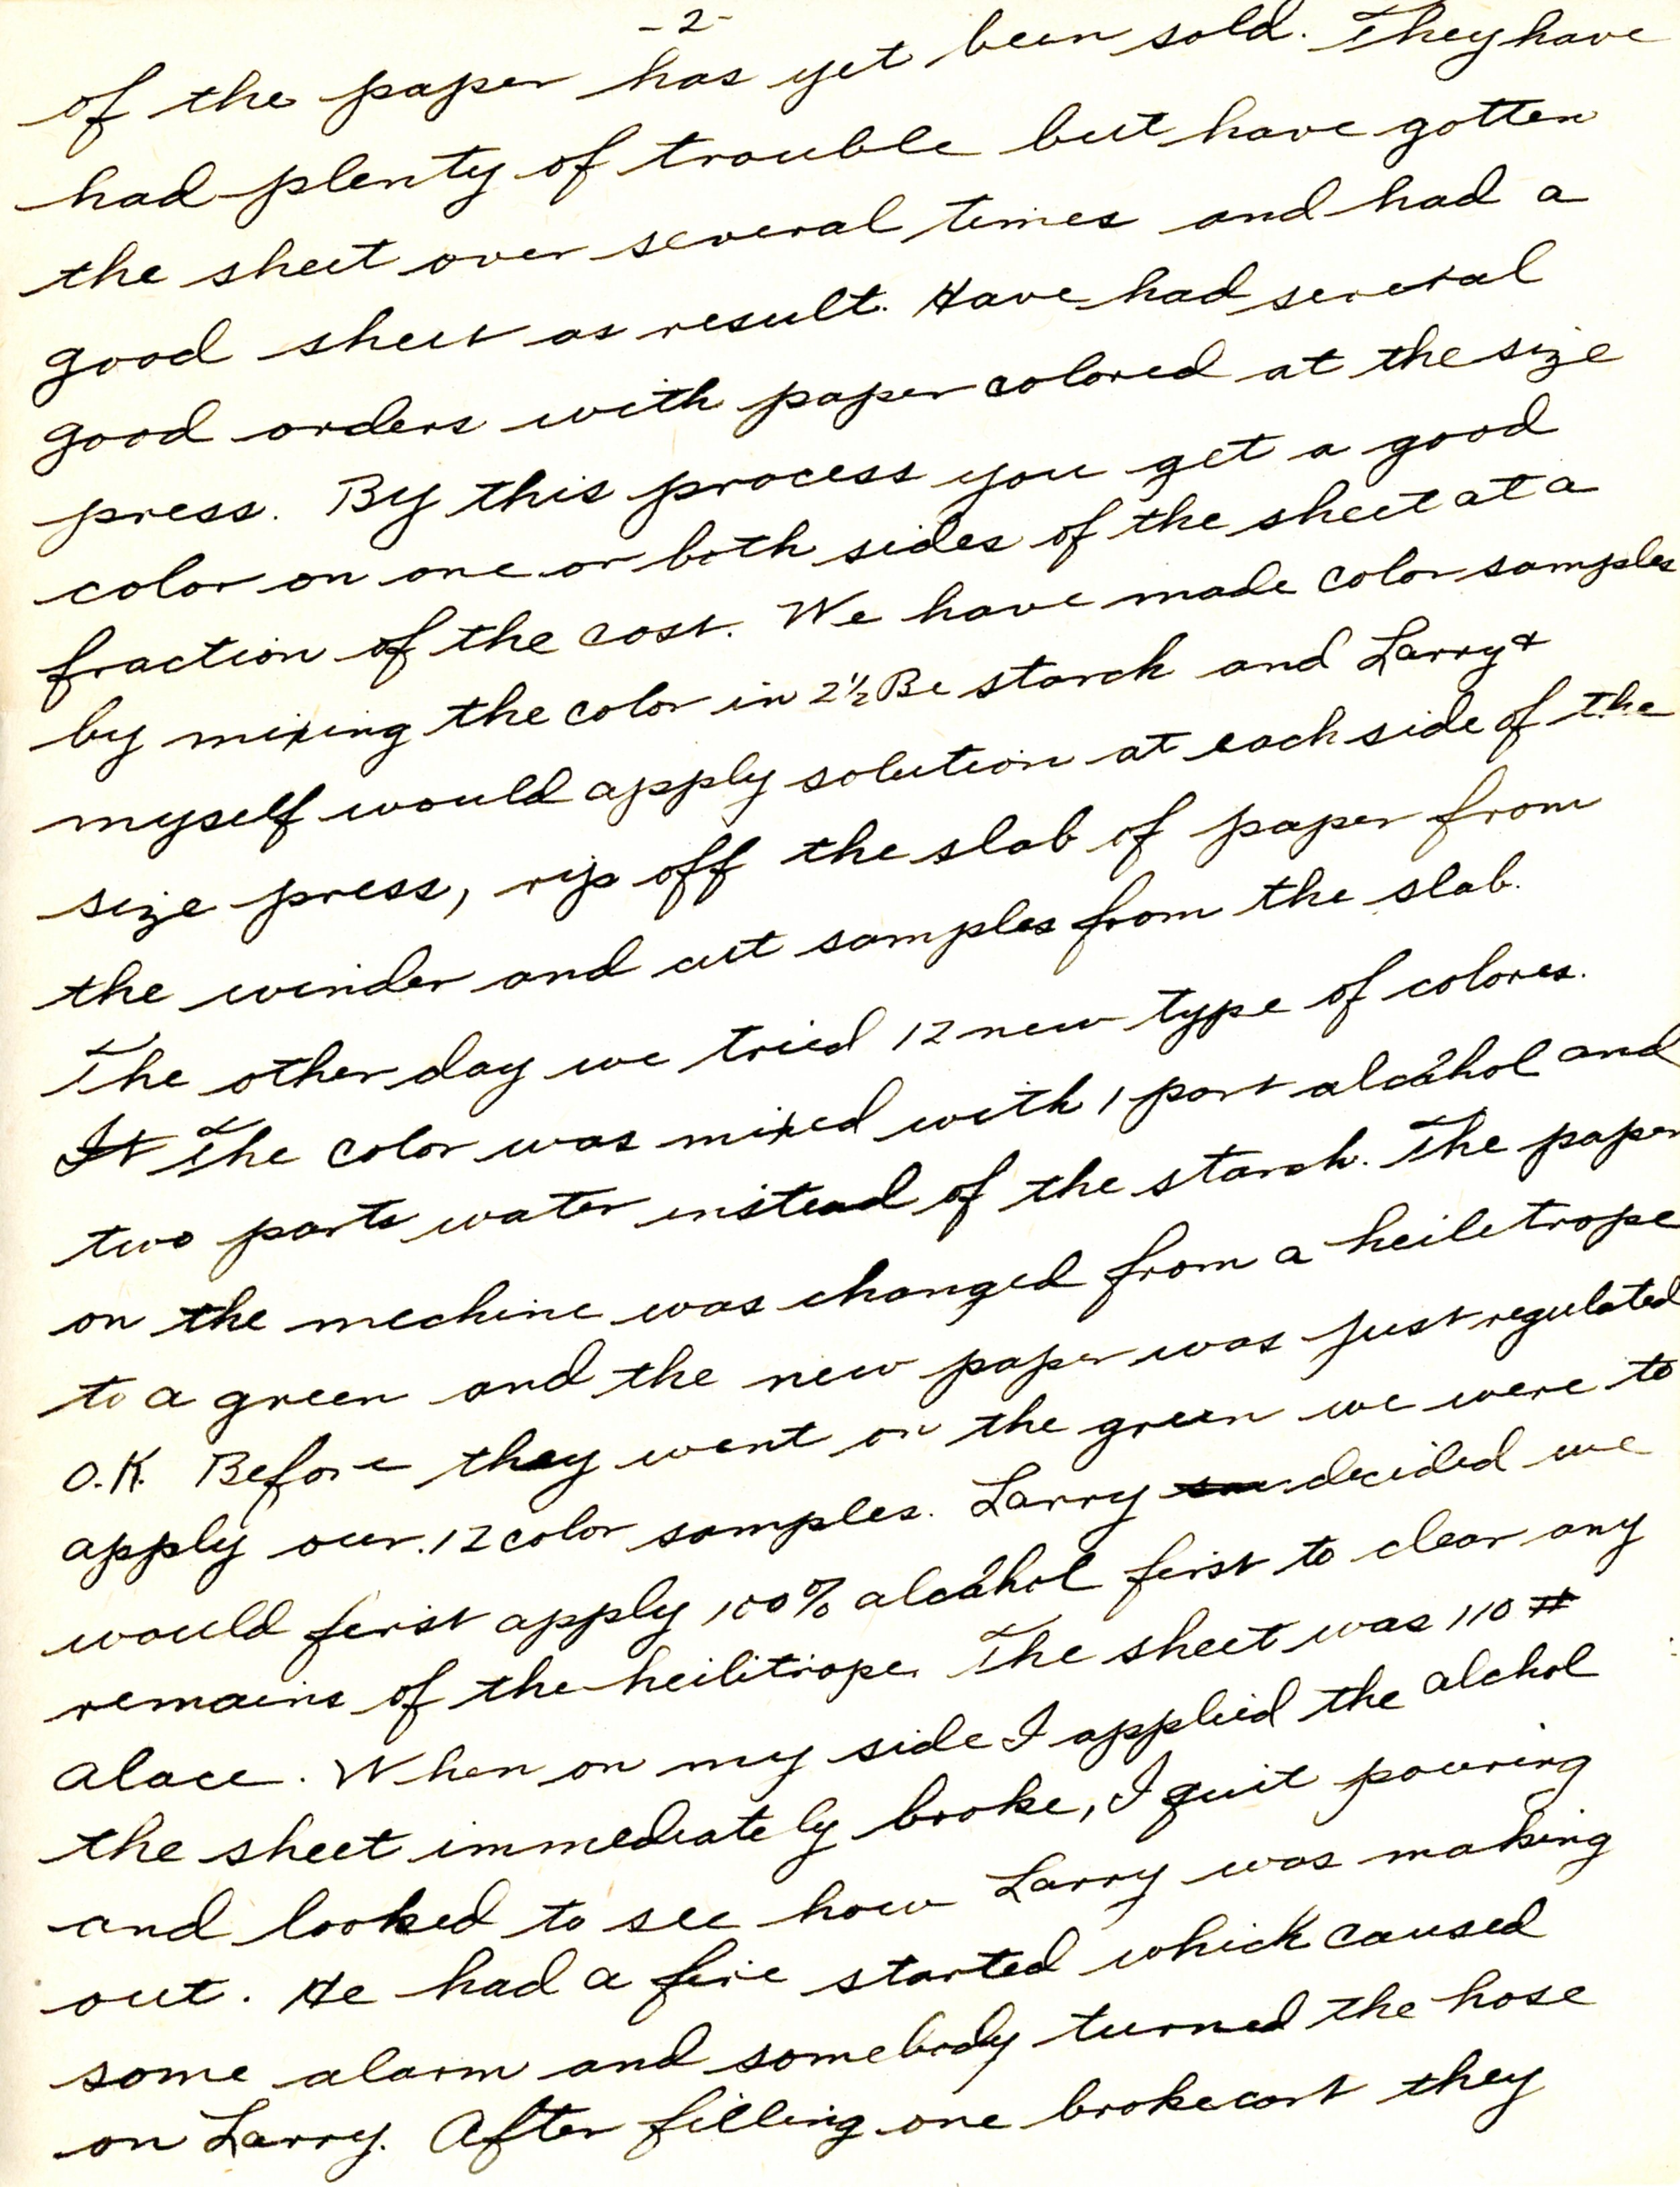 -2-
of the paper has yet been sold. They have
had plenty of trouble but have gotten
the sheet over several times and had a
good sheet as result. Have had several
good orders with paper colored at the size
press. By this process you get a good
color on one or both sides of the sheet at a
fraction of the cost. We have made color samples
by mixing the color in 2½ Be starch and Larry &
myself would apply solution at each side of the
size press, rip off the slab of paper from
the winder and cut samples from the slab.
The other day we tried 12 new type of colores.
It The color was mixed with 1 part alcahol and
two parts water instead of the starch. The paper
on the mechine was changed from a heiletrope
to a green and the new paper was just regulated
O.K. Before they went on the green we were to
apply our 12 color samples. Larry decided we
would first apply 100% alcahol first to clear any
remains of the heilitrope. The sheet was 110 #
alace. When on my side I applied the alchol
the sheet immediately broke, I quit pouring
and looked to see how Larry was making
out. He had a fire started which caused
some alarm and somebody turned the hose
on Larry. After filling one brokecart they